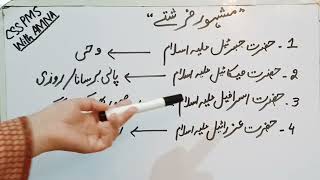 CSS PMS
With AMNA
"مشہور فرشتے"
1 - حضرت جبرئیل علیہ اسلام ← وحی
2 - حضرت میکائیل علیہ اسلام ← پانی برسانا / روزی
3 - حضرت اسرافیل علیہ اسلام
4 - حضرت عزرائیل علیہ اسلام ←